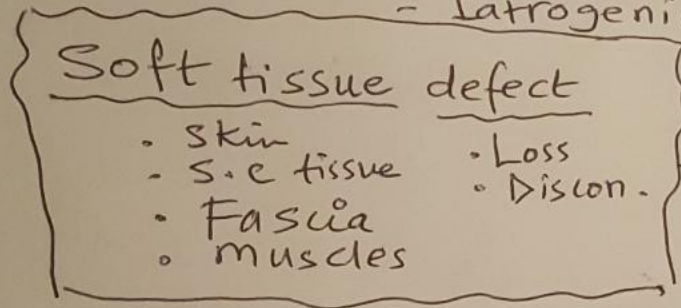 - Iatrogeni
Soft tissue defect
· Skin
- S.c tissue
· Fascia
· muscles
· Loss
· Discon.